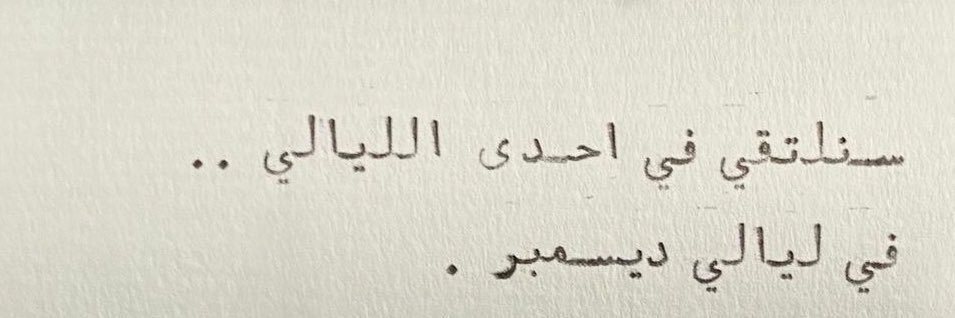 سنلتقي في احدى الليالي ..
في ليالي ديسمبر .